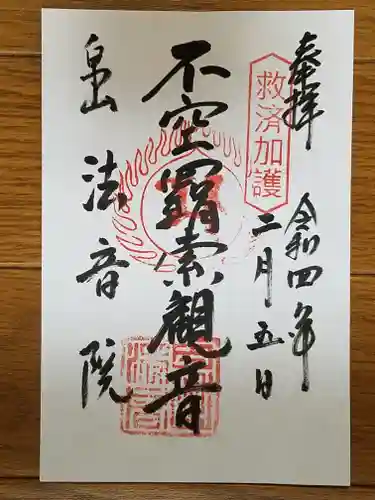 奉拝
救済加護
令和四年
二月五日
不空羂索観音
法音院